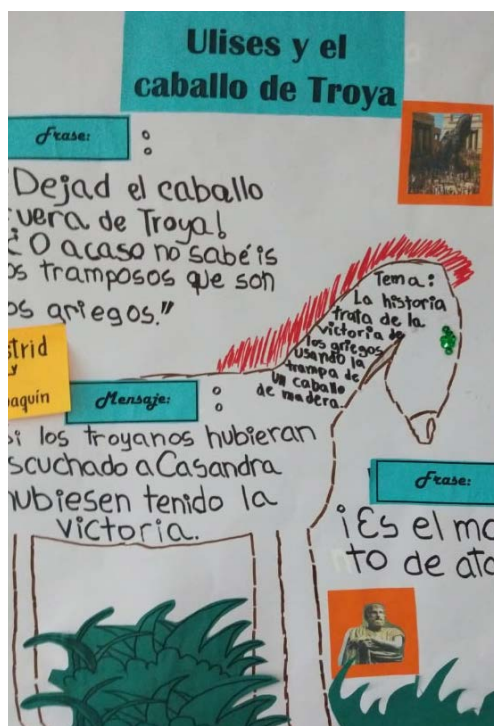 Ulises y el
caballo de Troya
Frase:
Dejad el caballo
uera de Troya!
¿O acaso no sabéis
os tramposos que son
os griegos."
strid
y
aquín
Tema:
La historia
trata de la
victoria de
los griegos
usando la
trampa de
un caballo
de madera.
Mensaje:
i los troyanos hubieran
scuchado a Casandra
hubiesen tenido la
victoria.
Frase:
¡Es el mo
to de ata